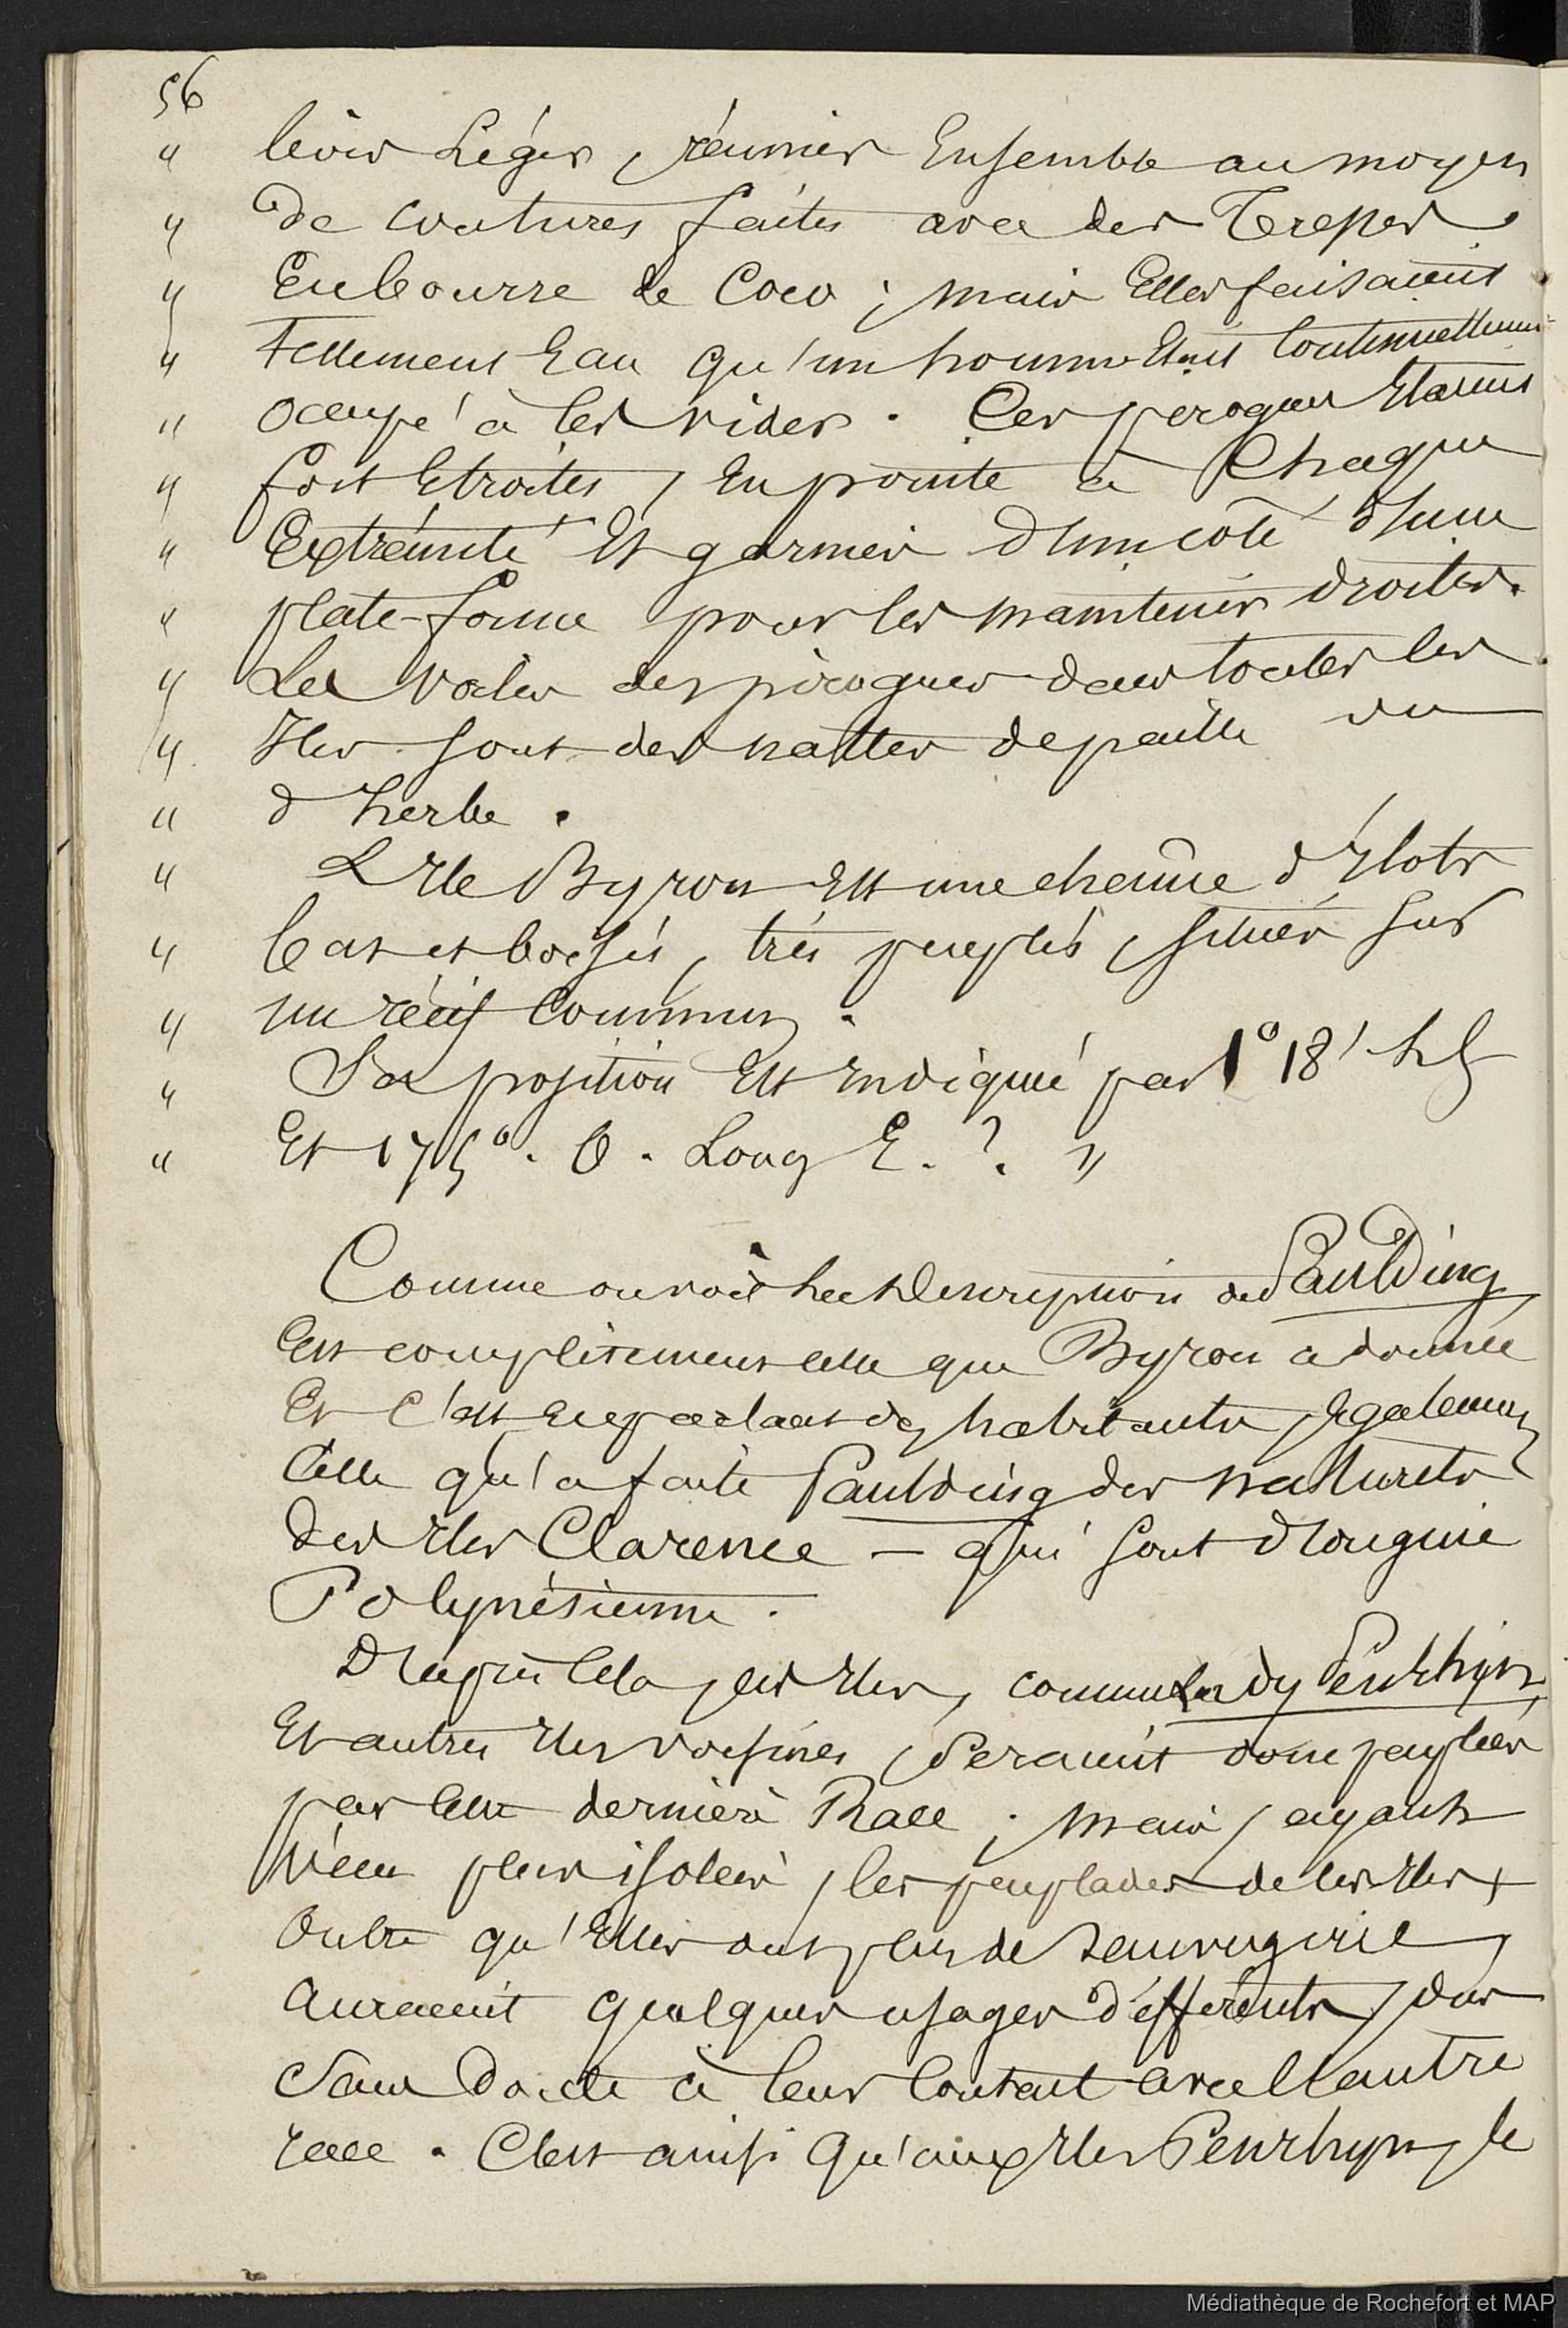 56
" bois Léger, réunies Ensemble au moyen
" de coutures faites avec des Tresses
" En bourre de Coco ; mais Elles faisaient
" Tellement Eau qu'un homme Etait Continuellement
" Occupé à les vider. Ces pirogues Etaient
" fort Etroites, En pointe à Chaque
" Extrémité Et garnies d'un côté d'une
" plate-forme pour les maintenir droites.
" Les voiles des pirogues dans toutes les
" Iles sont des nattes de paille ou
" d'herbe.
" L'Ile Byron Est une chaîne d'Ilots
" bas et boisés, très peuplés, situés sur
" un récif Commun.
" Sa position Est Indiqué par 1° 18' lat S
" Et 175°. 0. Long E. ? "
Comme on voit cette Description de Paulding
Est complètement celle que Byron a donnée
Et c'est En parlant des habitants, Egalement
Celle qu'a faite Paulding des naturels
des Iles Clarence — qui sont d'origine
Polynésienne.
D'après Cela, ces Iles, comme Lady Penrhyn
Et autres Iles voisines, Seraient donc peuplées
par cette dernière Race ; mais, ayant
vécu plus isolées, les peuplades de ces Iles +
Outre qu'Elles ont plus de sauvagerie,
Auraient quelques usages différents, dus
Sans Doute à leur Contact avec l'autre
race. C'est ainsi qu'aux Iles Penrhyn, le
Médiathèque de Rochefort et MAP